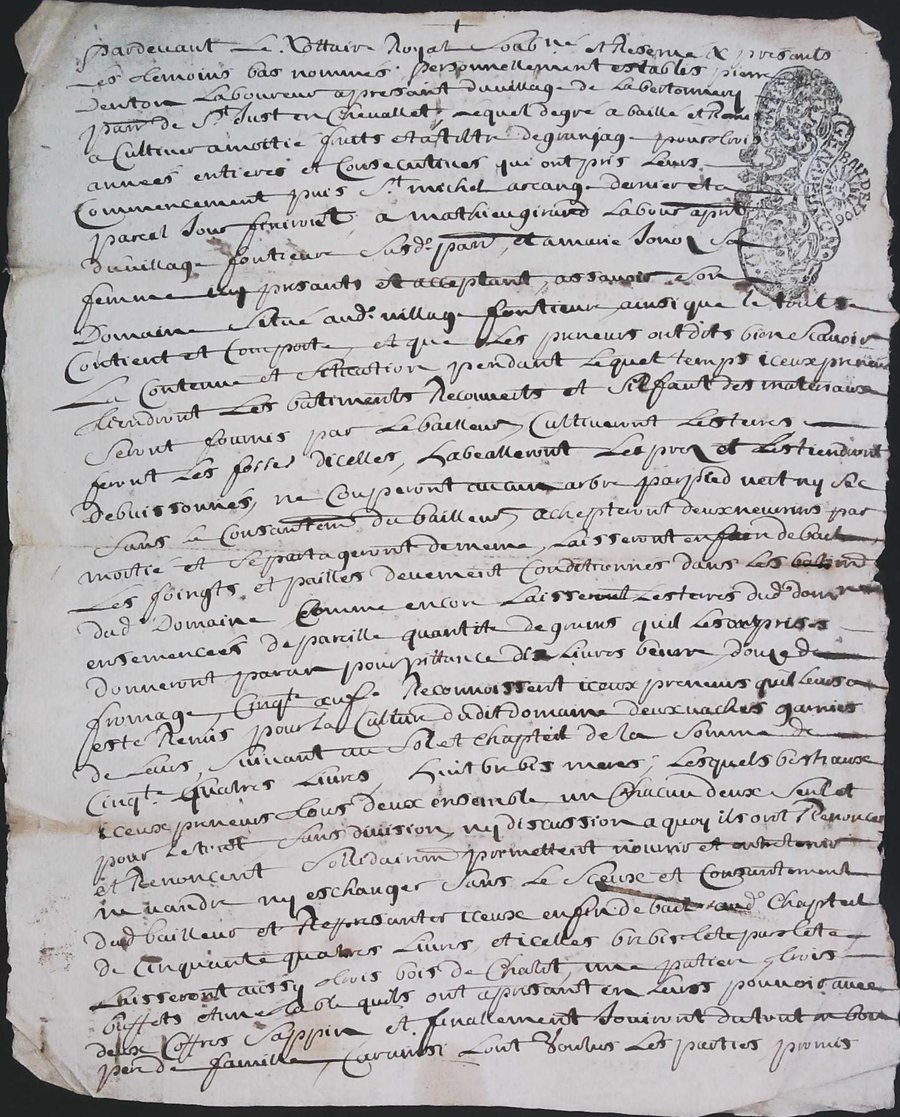 Pardevant Le Nottaire Royal soubné et Reservé & presents
Les temoins bas nommés, personnellement establis pierre
Denton Laboureur apresant du village de Labertonnery
parr de St Just en Chevallet; Lequel de gré a baillé et Remis
a Cultiver a moitie fruits et a tiltre de granjage pour trois
années entieres et Consecutives qui ont pris Leurs
Commencement puis St michel arcange dernier et a
pareil Jour finiront, a mathieu girard Laboureur
du village fontieure susd. parr, et a marie Jonon Sa
femme icy presants et acceptant, assavoir son
Domaine situé aud. village fontieure, ainsi que le tout se
Contient et Comporte, et que Les preneurs ont dits bien scavoir
La Contenue et Sittuation pendant Lequel temps iceux preneurs
tiendront Les batiments Recouverts et S'il faut des materiaux
Seront fournis par Le bailleur, Cultiveront Les terres
feront Les fossés dicelles, Les prez et Les tiendront
Debuissonnés, ne Couperont aucun arbre par pied vert ny sec
Sans le Consantemt du bailleur, achepteront deux neurins par
moitie et Se partageront de meme, Laisseront en fin de bail
Les foingts et pailles devement Conditionnés dans Les batiments
dud. Domaine Comme encor Laisseront Les terres dud. domaine
ensemencées de pareille quantité de grains quil Les ont prises
Donneront par an pour pittance dix Livres beurre, douze de
fromage, Cinqte œufs, Reconnoissent iceux preneurs quil leurs a
esté Remis pour La Culture dudit domaine deux vaches garnies
de Leurs, Suivant au Sol et Chapteil de La Somme de
Cinqte quatres Livres, huit brebis meres; Lesquels bestiaux
iceux preneurs tous deux ensemble, un Chacun deux Seul et
pour Le tout Sans division, ny discussion a quoy ils ont Renoncé
et Renoncent Sollidairemt promettent nourrir et entretenir
ne vandre ny eschanger Sans Le Sceux et Consantement
dud. bailleur et Represanter iceux en fin de bail aud. Chapteil
de Cinquante quatres Livres, et icelles brebis tete par tete
Laisseront aussy trois bois de Chalit, une patiere, trois
buffets et une table quils ont apresant en Leurs pouvoir avec
deux Coffres Sappin et finallement Jouiront du tout en bon
pere de famille, Car ainsi Lont Voulus Les parties promis
GE BAIL DE